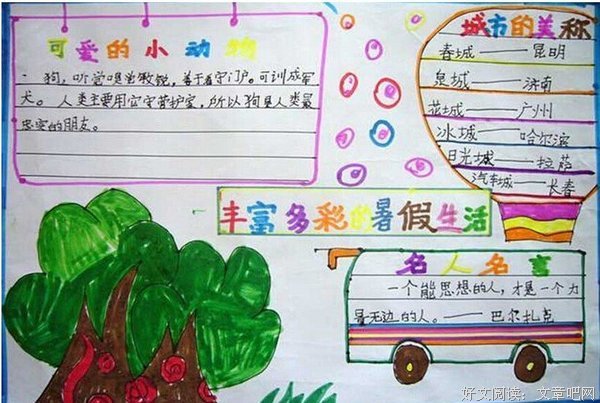 可爱的小动物
狗，听觉嗅觉敏锐，善于看守门户。可训成军
犬。人类主要用它守营护家，所以狗是人类最
忠实的朋友。
城市的美称
春城——昆明
泉城——济南
花城——广州
冰城——哈尔滨
日光城——拉萨
汽车城——长春
丰富多彩的暑假生活
名人名言
一个能思想的人，才是一个力
量无边的人。——巴尔扎克
好文阅读：文章吧网